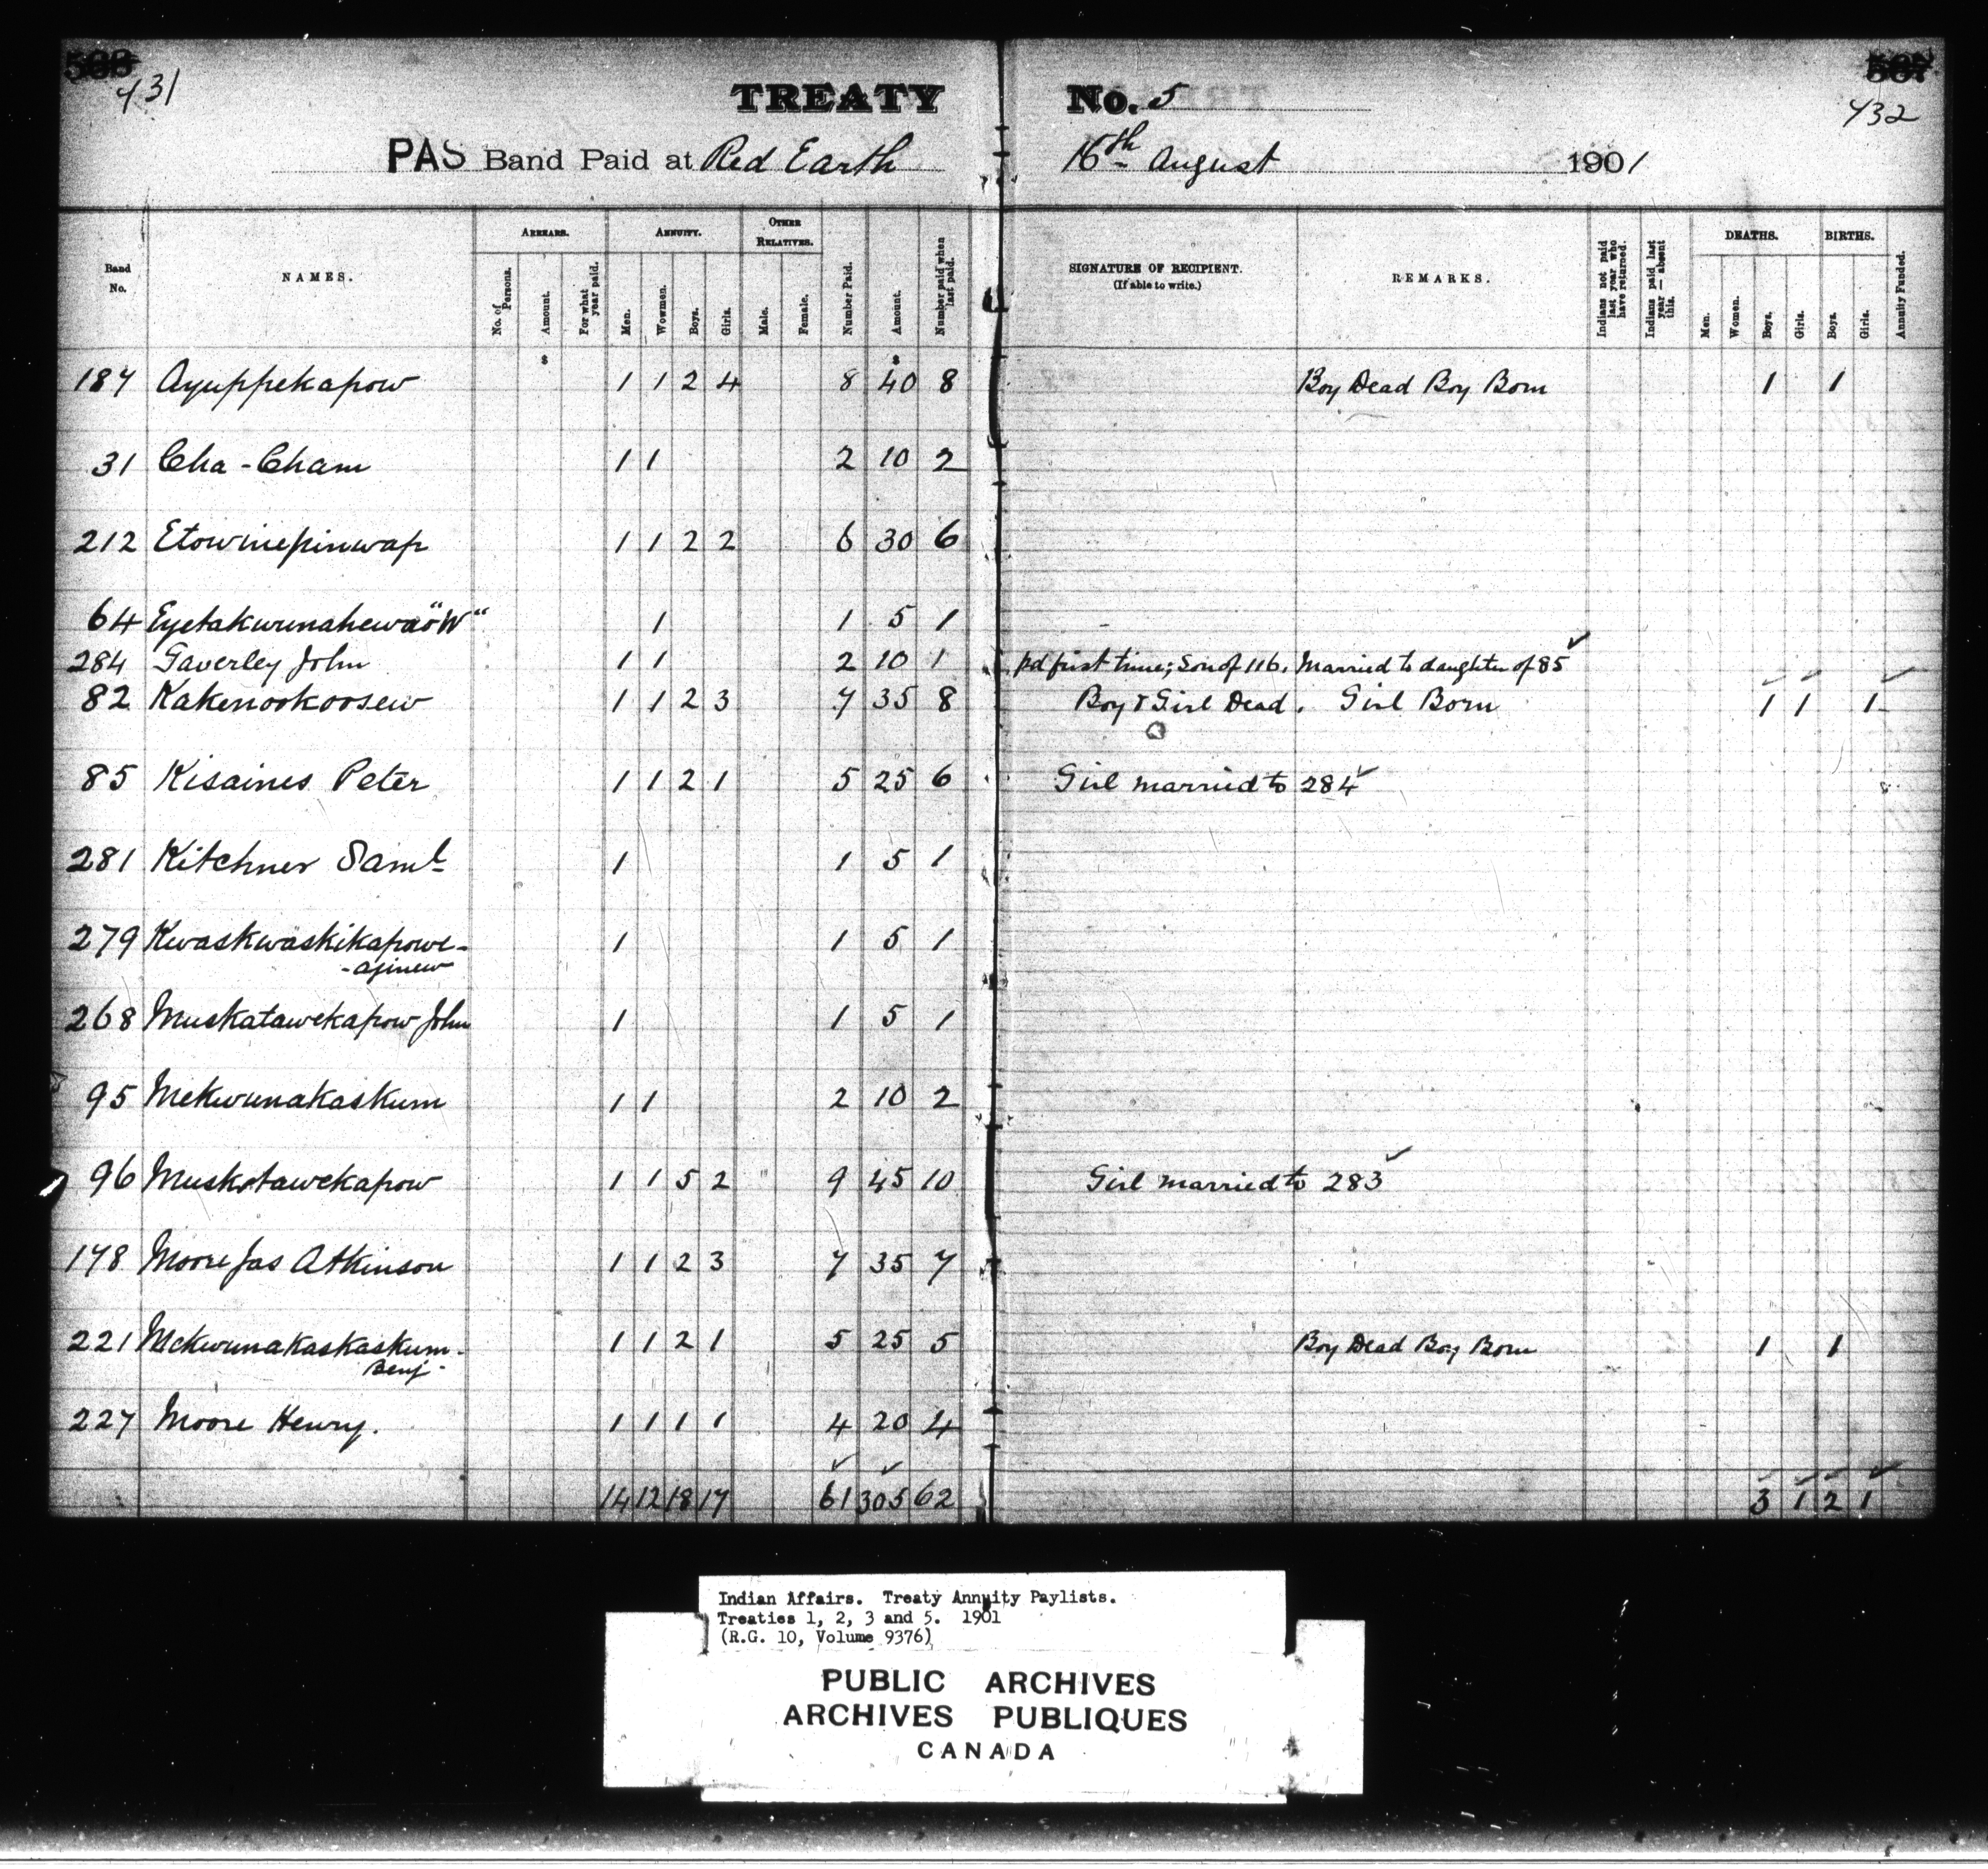 431
432
TREATY No. 5
PAS Band Paid at Red Earth 16th August 1901
Band No. NAMES. ARREARS. No. of Persons. Amount. For what year paid. ANNUITY. Men. Wowmen. Boys. Girls. OTHER RELATIVES. Male. Female. Number Paid. Amount. Number paid when last paid. SIGNATURE OF RECIPIENT. (If able to write.) REMARKS. Indians not paid last year who have returned. Indians paid last year — absent this. DEATHS. Men. Women. Boys. Girls. BIRTHS. Boys. Girls. Annuity Funded.
$ $
187 Ayuppekapow 1 1 2 4 8 40 8 Boy Dead Boy Born 1 1
31 Cha-Cham 1 1 2 10 2
212 Etowinepinwap 1 1 2 2 6 30 6
64 Eyetakwunahewao "W" 1 1 5 1
284 Gaverley John 1 1 2 10 1 pd first time; Son of 116. Married to daughter of 85
82 Kakenookoosew 1 1 2 3 7 35 8 Boy & Girl Dead. Girl Born 1 1 1
85 Kisaines Peter 1 1 2 1 5 25 6 Girl married to 284
281 Kitchner Saml 1 1 5 1
279 Kwaskwaskikapowe- 1 1 5 1
-ajinew
268 Muskatawekapow John 1 1 5 1
95 Mekwunakaskum 1 1 2 10 2
96 Muskotawekapow 1 1 5 2 9 45 10 Girl married to 283
178 Moore Jas Atkinson 1 1 2 3 7 35 7
221 Mekwunakaskaskum- 1 1 2 1 5 25 5 Boy Dead Boy Born 1 1
Benj-
227 Moore Henry. 1 1 1 1 4 20 4
14 12 18 17 61 305 62 3 1 2 1
Indian Affairs. Treaty Annuity Paylists.
Treaties 1, 2, 3 and 5. 1901
(R.G. 10, Volume 9376)
PUBLIC ARCHIVES
ARCHIVES PUBLIQUES
CANADA